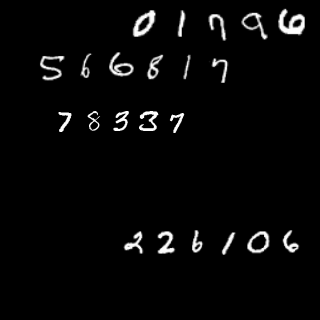 01796
566817
78337
226106